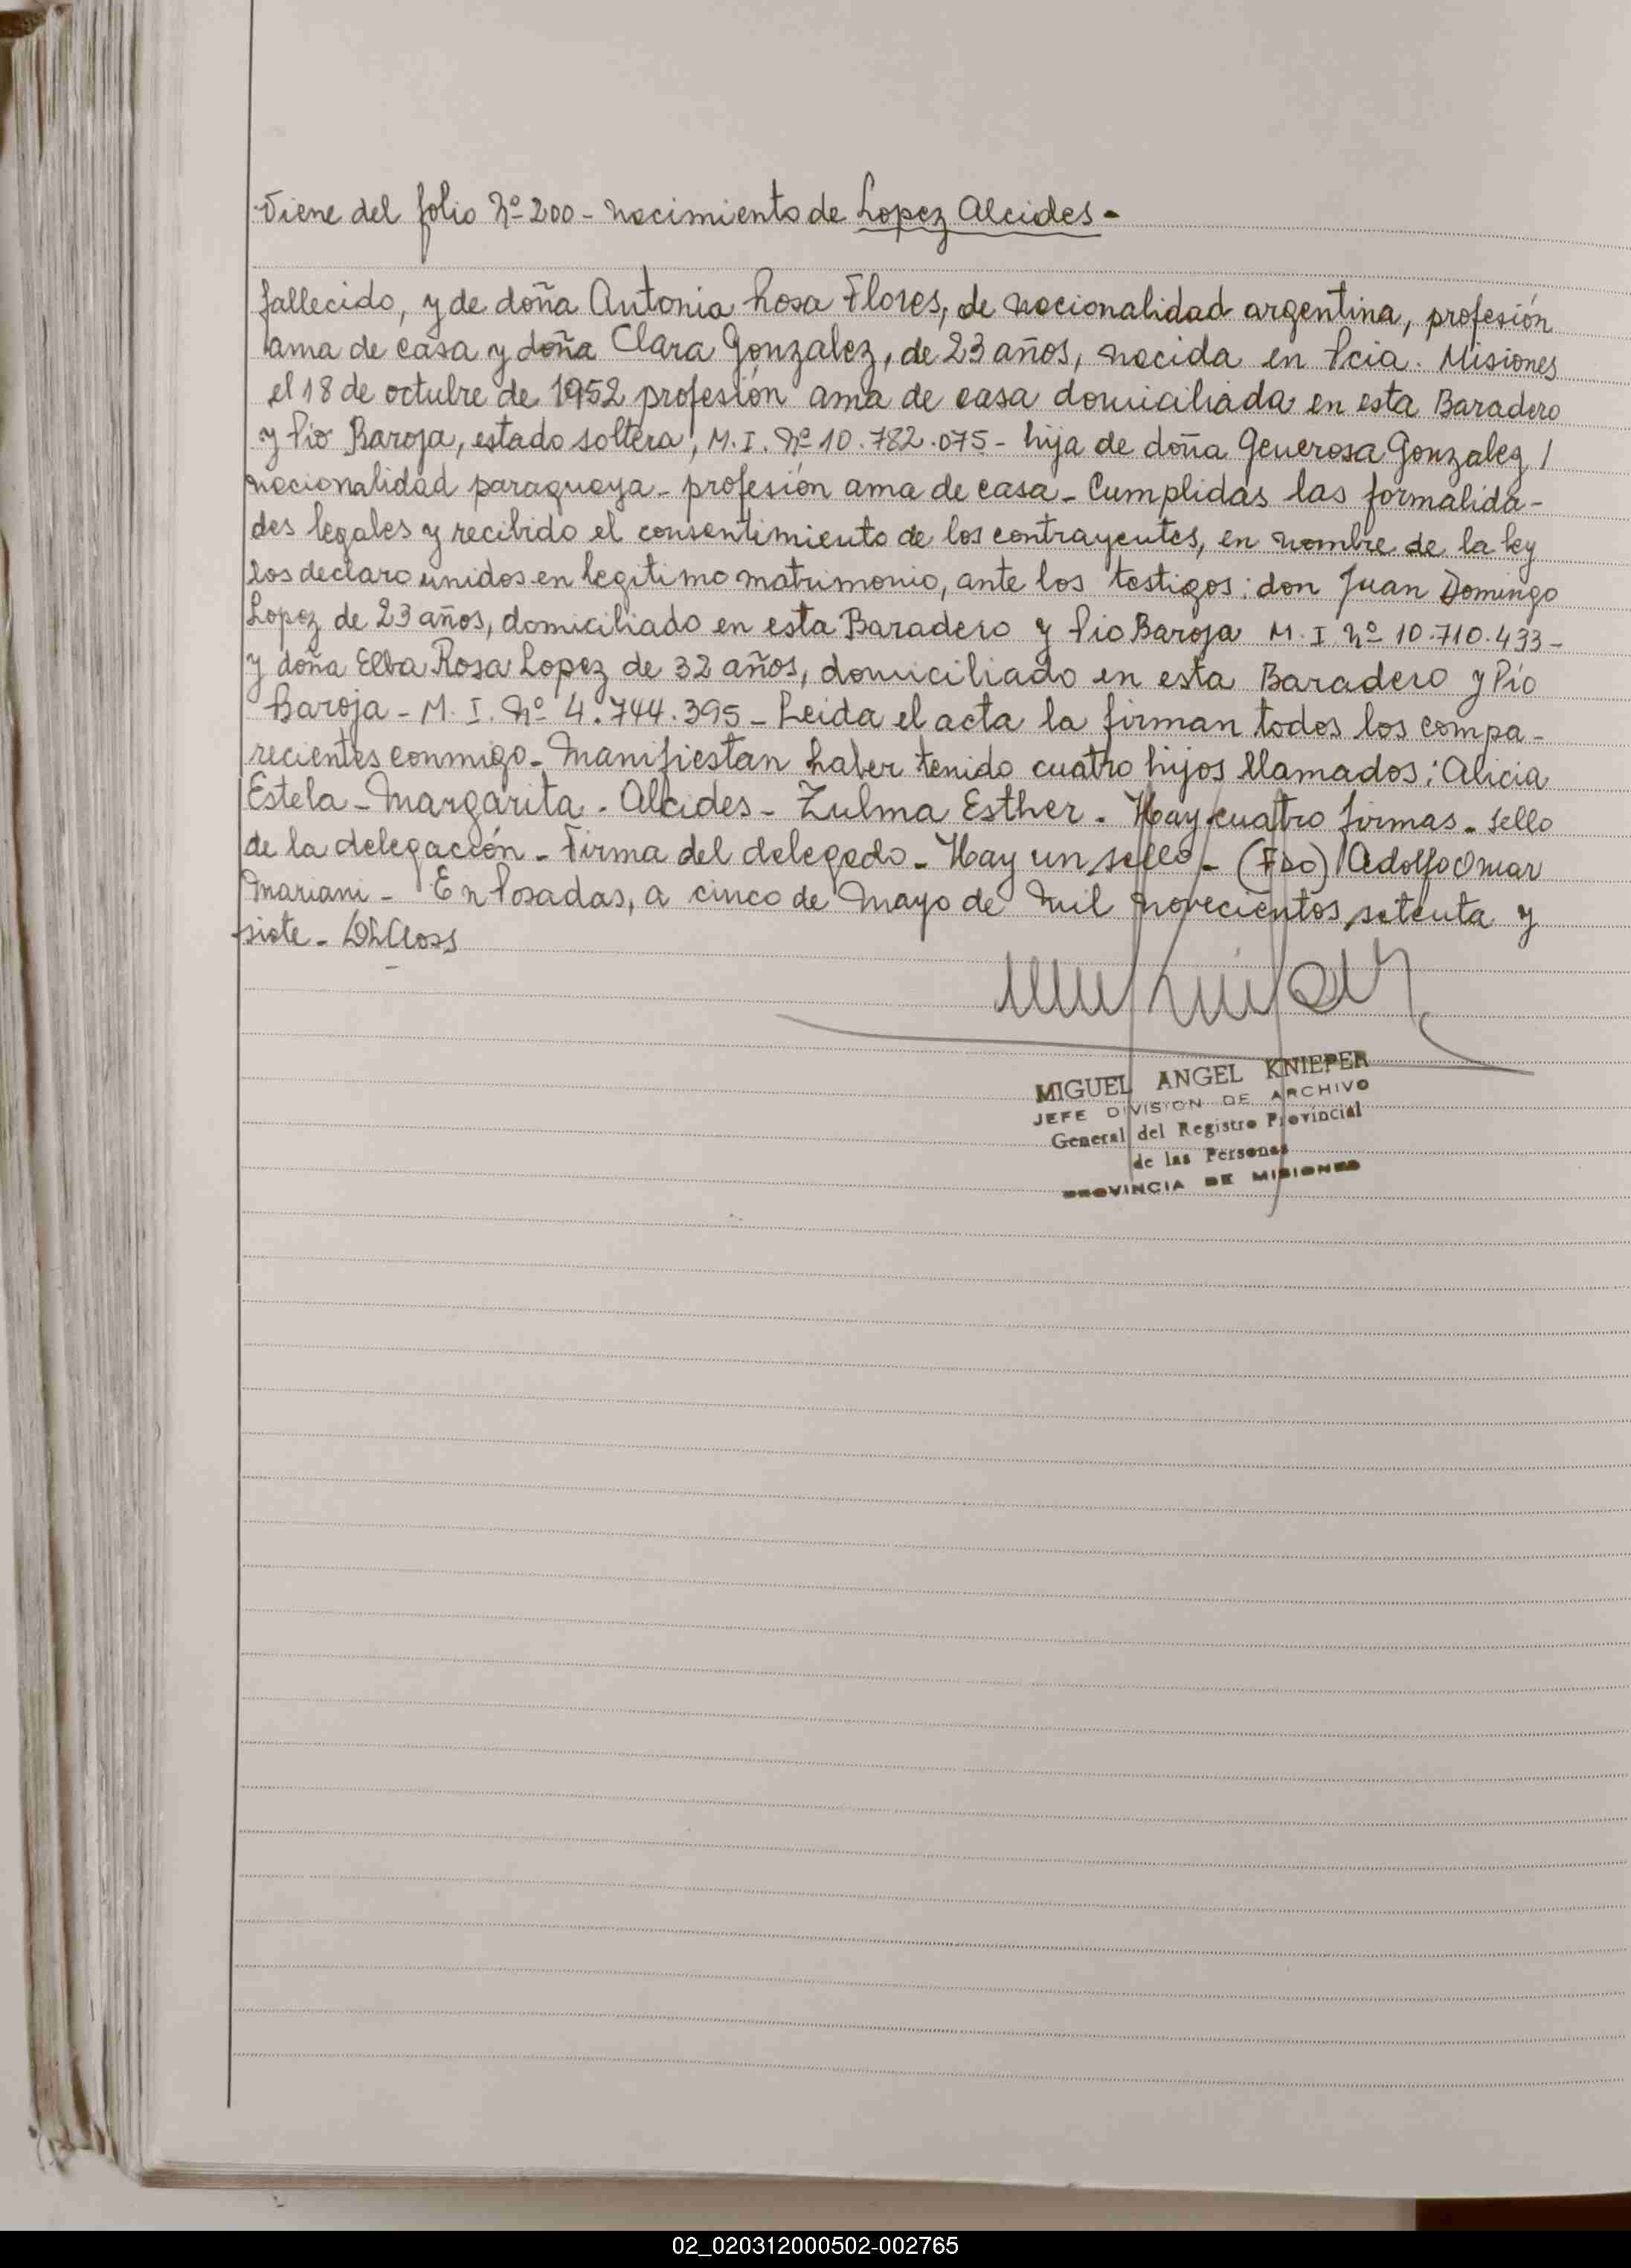 Viene del folio Nº 200 - Nacimiento de Lopez Alcides -
fallecido, y de doña Antonia Rosa Flores, de nacionalidad argentina, profesión
ama de casa y doña Clara Gonzalez, de 23 años, nacida en Pcia. Misiones
el 18 de octubre de 1952 profesión ama de casa domiciliada en esta Baradero
y Pío Baroja, estado soltera, M.I. Nº 10.782.075 - hija de doña Generosa Gonzalez /
nacionalidad paraguaya - profesión ama de casa - Cumplidas las formalida-
des legales y recibido el consentimiento de los contrayentes, en nombre de la ley
los declaro unidos en legitimo matrimonio, ante los testigos: don Juan Domingo
Lopez de 23 años, domiciliado en esta Baradero y Pio Baroja M.I. Nº 10.710.433 -
y doña Elba Rosa Lopez de 32 años, domiciliado en esta Baradero y Pío
Baroja - M.I. Nº 4.744.395 - Leida el acta la firman todos los compa-
recientes conmigo - Manifiestan haber tenido cuatro hijos llamados: Alicia
Estela - Margarita - Alcides - Zulma Esther - Hay cuatro firmas - sello
de la delegación - Firma del delegado - Hay un sello - (Fdo) Adolfo Omar
Mariani - En Posadas, a cinco de Mayo de mil novecientos setenta y
siete -
MIGUEL ANGEL KNIEPER
JEFE DIVISION DE ARCHIVO
General del Registro Provincial
de las Personas
PROVINCIA DE MISIONES
02_020312000502-002765